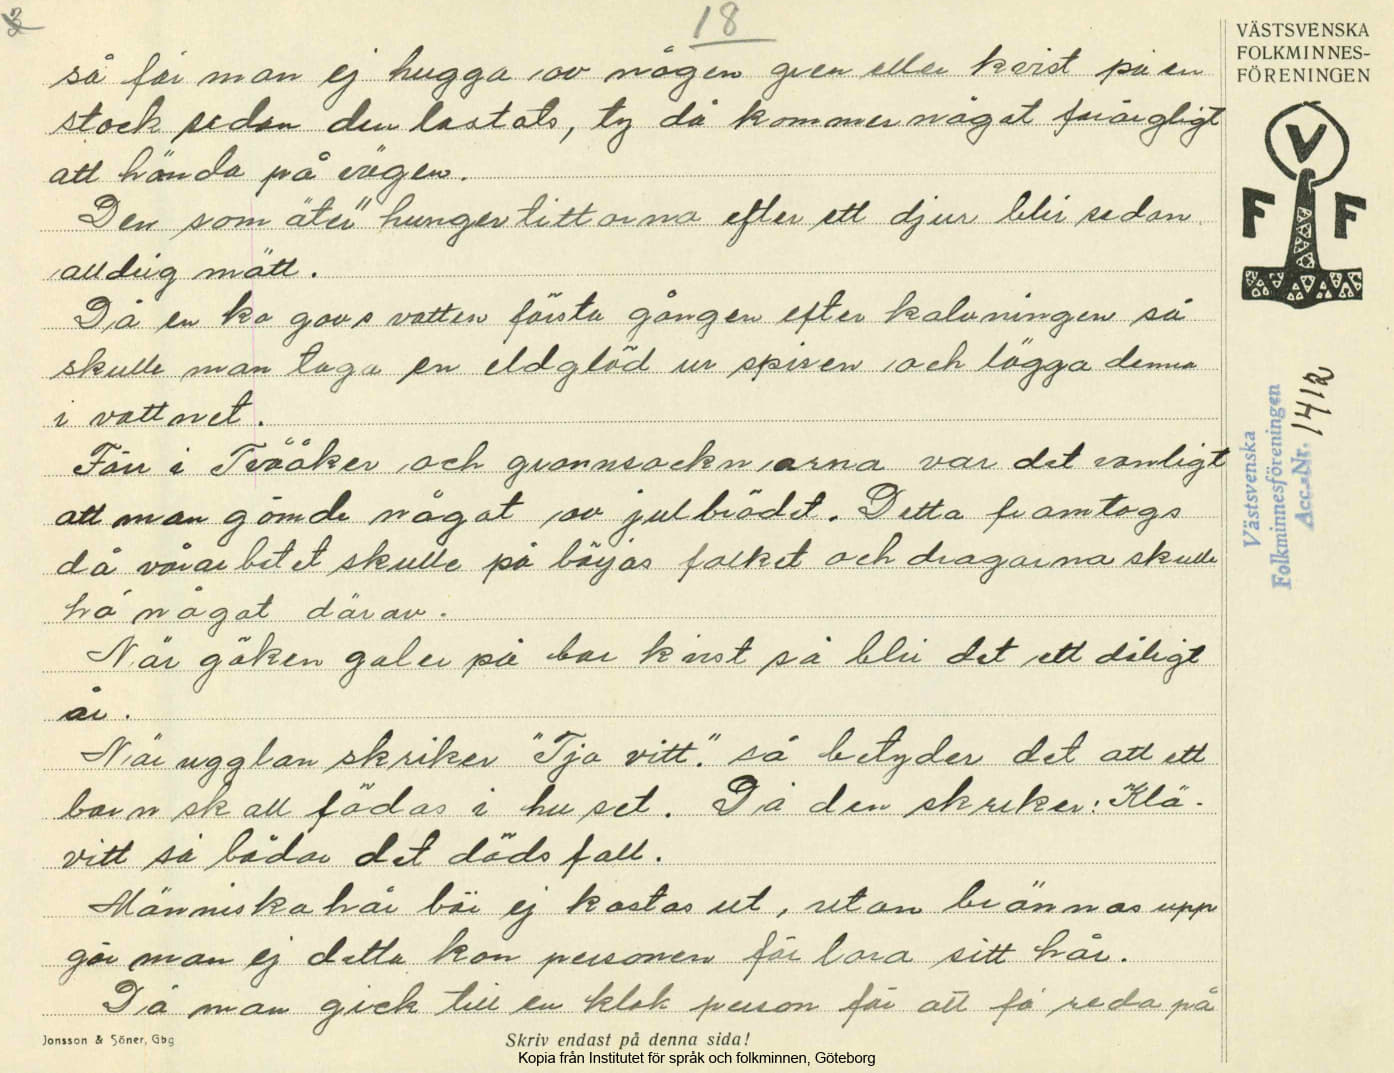 18
VÄSTSVENSKA
FOLKMINNES-
FÖRENINGEN
V
F F
Västsvenska
Folkminnesföreningen
Acc.-Nr. 1412
så får man ej hugga av någon gren eller kvist på en
stock sedan den lastats, ty då kommer något förargligt
att hända på vägen.
Den som äter "hungertittarna efter ett djur blir sedan
alldrig mätt.
Då en ko gavs vatten första gången efter kalvningen så
skulle man taga en eldglöd ur spisen och lägga denna
i vattnet.
Förr i Tvååker och grannsocknarna var det vanligt
att man gömde något av julbrödet. Detta framtogs
då vårarbetet skulle på börjas folket och dragarna skulle
ha något därav.
När göken galer på bar kvist så blir det ett dåligt
år.
När ugglan skriker "Tja vitt". så betyder det att ett
barn skall födas i huset. Då den skriker: "Klä-
vitt så bådar det dödsfall.
Människohår bör ej kastas ut, utan brännas upp
gör man ej detta kan personen förlora sitt hår.
Då man gick till en klok person för att få reda på
Jonsson & Söner, Gbg
Skriv endast på denna sida!
Kopia från Institutet för språk och folkminnen, Göteborg